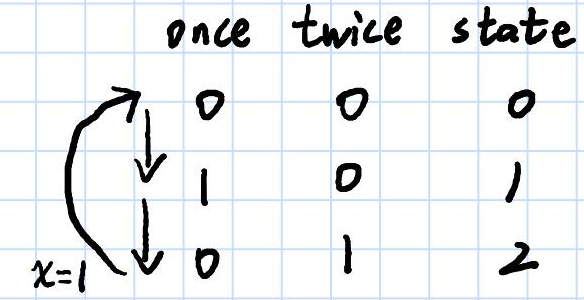 once twice state
0 0 0
1 0 1
0 1 2
x=1